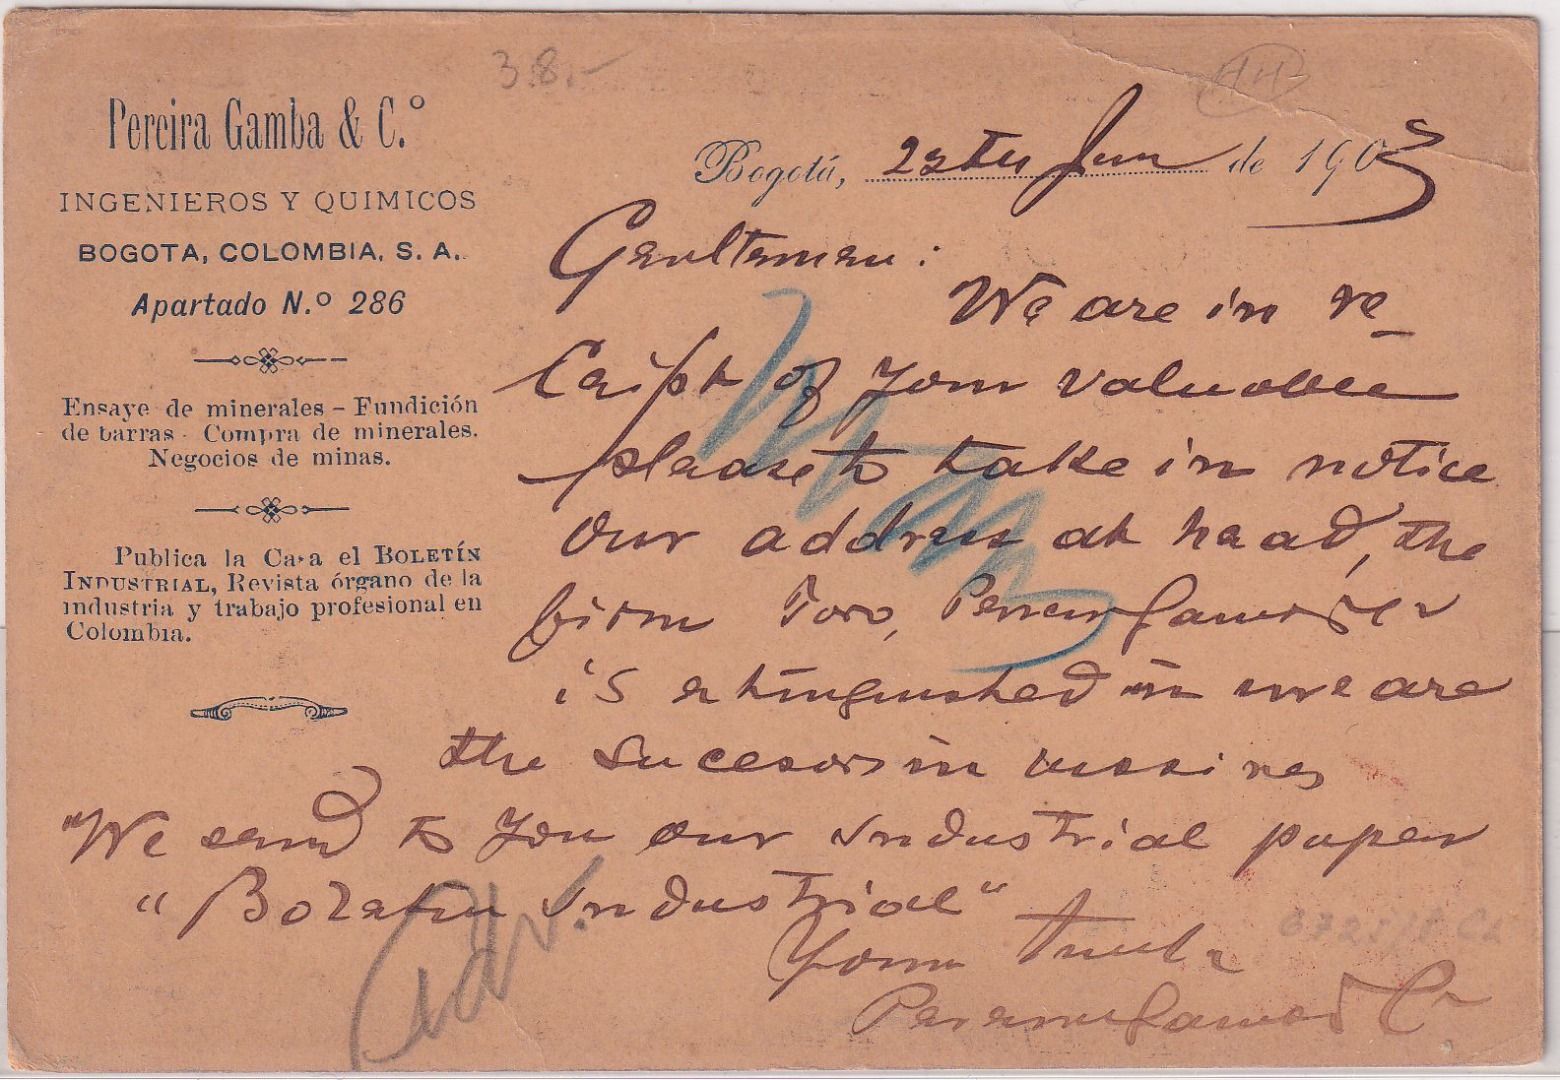 38.-
Pereira Gamba & C.º
INGENIEROS Y QUIMICOS
BOGOTA, COLOMBIA, S. A.
Apartado N.º 286
Ensaye de minerales - Fundición
de barras - Compra de minerales.
Negocios de minas.
Publica la Casa el BOLETÍN
INDUSTRIAL, Revista órgano de la
industria y trabajo profesional en
Colombia.
Bogotá, Jun de 1903
Gentlemen:
We are in re-
ceipt of your valuable
please to take in notice
our address at head, the
firm Toro, Pereira Gamba & Co
is extinguished in we are
the sucesors in
"We send to you our industrial paper
"Boletin industrial"
Yours truly
Pereira Gamba & Co